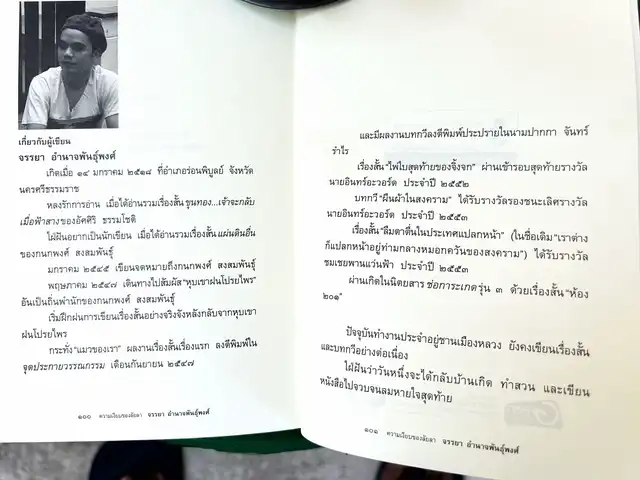 เกี่ยวกับผู้เขียน
จรรยา อำนาจพันธุ์พงศ์
เกิดเมื่อ ๑๔ มกราคม ๒๕๑๘ ที่อำเภอร่อนพิบูลย์ จังหวัด
นครศรีธรรมราช
หลงรักการอ่าน เมื่อได้อ่านรวมเรื่องสั้น ขุนทอง...เจ้าจะกลับ
เมื่อฟ้าสาง ของอัศศิริ ธรรมโชติ
ใฝ่ฝันอยากเป็นนักเขียน เมื่อได้อ่านรวมเรื่องสั้น แผ่นดินอื่น
ของกนกพงศ์ สงสมพันธุ์
มกราคม ๒๕๔๕ เขียนจดหมายถึงกนกพงศ์ สงสมพันธุ์
พฤษภาคม ๒๕๔๗ เดินทางไปสัมผัส "หุบเขาฝนโปรยไพร"
อันเป็นถิ่นพำนักของกนกพงศ์ สงสมพันธุ์
เริ่มฝึกฝนการเขียนเรื่องสั้นอย่างจริงจังหลังกลับจากหุบเขา
ฝนโปรยไพร
กระทั่ง "แมวของเรา" ผลงานเรื่องสั้นเรื่องแรก ลงตีพิมพ์ใน
จุดประกายวรรณกรรม เดือนกันยายน ๒๕๔๗
๑๐๐ ความเงียบของลับลา จรรยา อำนาจพันธุ์พงศ์
และมีผลงานบทกวีลงตีพิมพ์ประปรายในนามปากกา จันทร์
รำไร
เรื่องสั้น "ไพ่ใบสุดท้ายของจิ้งจก" ผ่านเข้ารอบสุดท้ายรางวัล
นายอินทร์อะวอร์ด ประจำปี ๒๕๕๒
บทกวี "ผืนผ้าในสงคราม" ได้รับรางวัลรองชนะเลิศรางวัล
นายอินทร์อะวอร์ด ประจำปี ๒๕๕๓
เรื่องสั้น "ลืมตาตื่นในประเทศแปลกหน้า" (ในชื่อเดิม "เราต่าง
ก็แปลกหน้าอยู่ท่ามกลางหมอกควันของสงคราม") ได้รับรางวัล
ชมเชยพานแว่นฟ้า ประจำปี ๒๕๕๓
ผ่านเกิดในนิตยสาร ช่อการะเกด รุ่น ๓ ด้วยเรื่องสั้น "ห้อง
๒๐๑"
ปัจจุบันทำงานประจำอยู่ชานเมืองหลวง ยังคงเขียนเรื่องสั้น
และบทกวีอย่างต่อเนื่อง
ใฝ่ฝันว่าวันหนึ่งจะได้กลับบ้านเกิด ทำสวน และเขียน
หนังสือไปจวบจนลมหายใจสุดท้าย
๑๐๑ ความเงียบของลับลา จรรยา อำนาจพันธุ์พงศ์